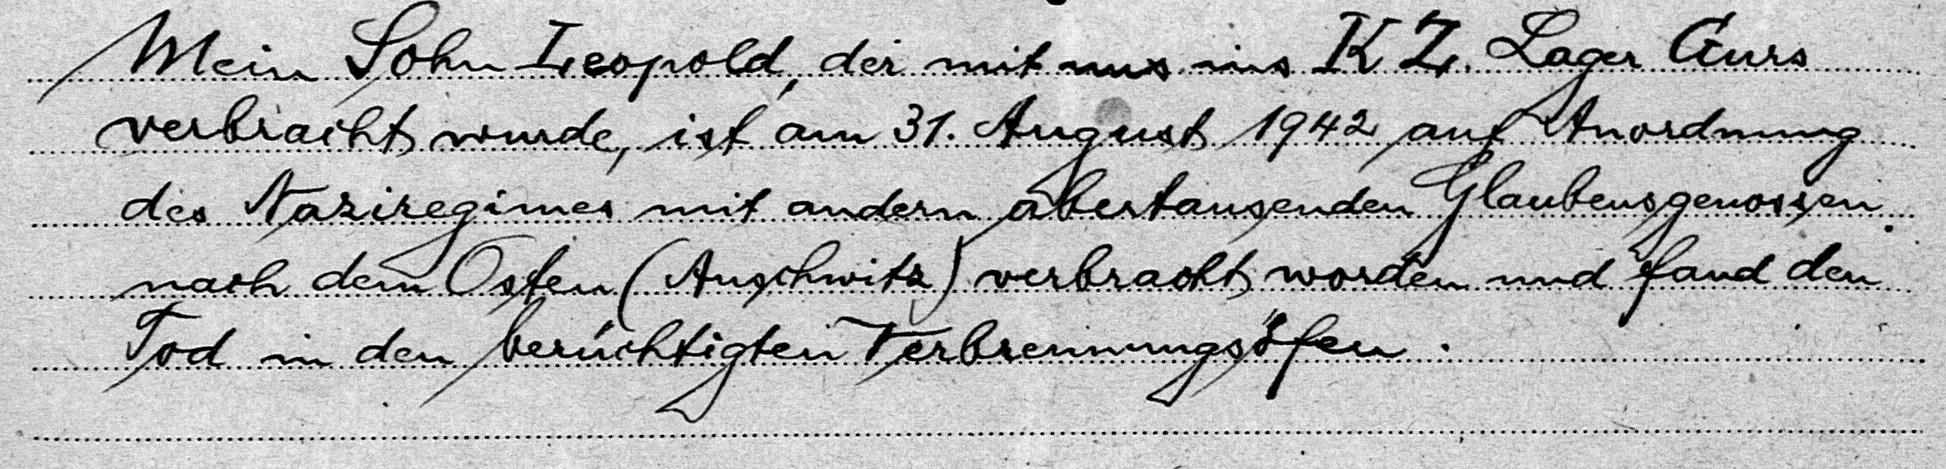 Mein Sohn Leopold, der mit uns ins KZ. Lager Gurs
verbracht wurde, ist am 31. August 1942 auf Anordnung
des Naziregimes mit andern abertausenden Glaubensgenossen
nach dem Osten (Auschwitz) verbracht worden und fand den
Tod in den berüchtigten Verbrennungsöfen.